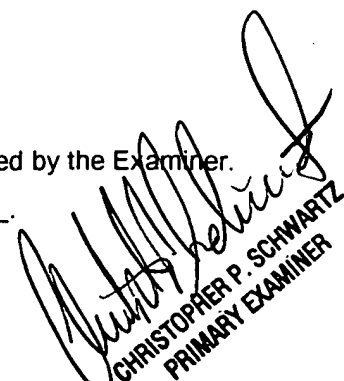 ed by the Examiner.
_.
CHRISTOPHER P. SCHWARTZ
PRIMARY EXAMINER